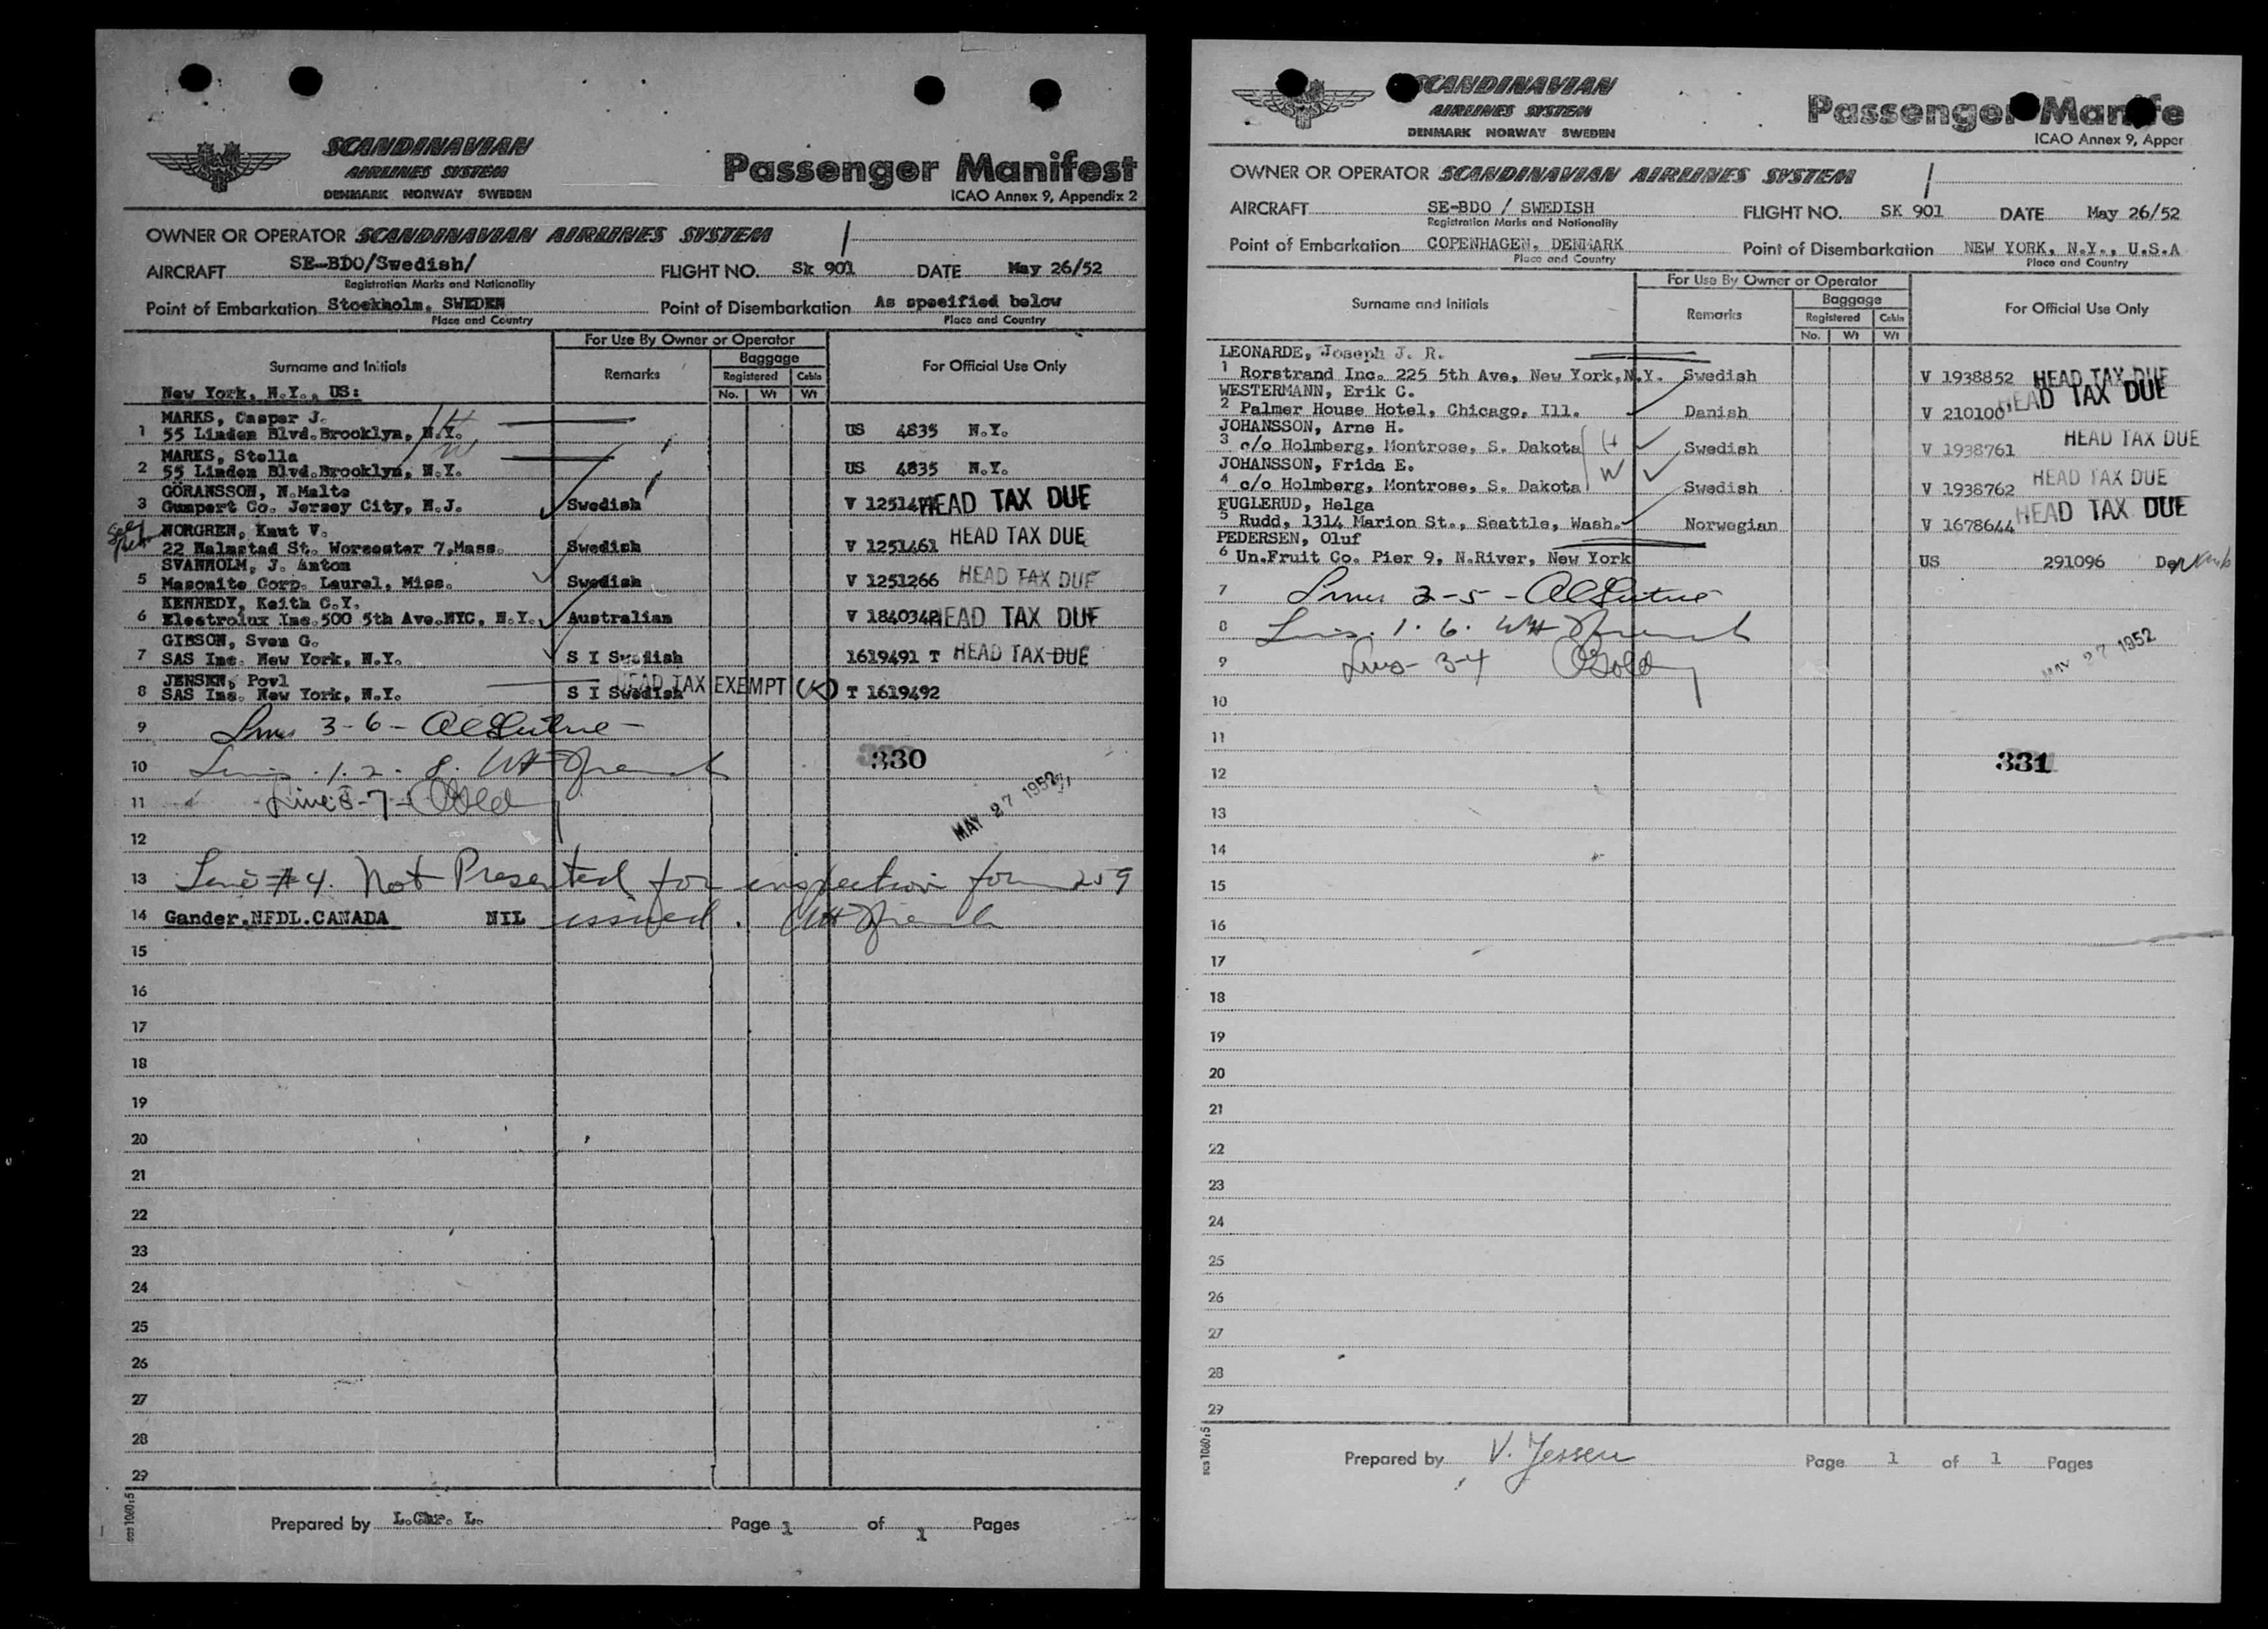 SCANDINAVIAN
AIRLINES SYSTEM
DENMARK NORWAY SWEDEN
Passenger Manifest
ICAO Annex 9, Appendix 2
OWNER OR OPERATOR SCANDINAVIAN AIRLINES SYSTEM
AIRCRAFT SE-BDO/Swedish/ FLIGHT NO. Sk 901 DATE May 26/52
Registration Marks and Nationality
Point of Embarkation Stockholm, SWEDEN Point of Disembarkation As specified below
Place and Country Place and Country
For Use By Owner or Operator
Surname and Initials Remarks Baggage For Official Use Only
Registered Cabin
New York, N.Y., US: No. Wt Wt
MARKS, Casper J.
1 55 Linden Blvd.Brooklyn, N.Y. US 4835 N.Y.
MARKS, Stella
2 55 Linden Blvd.Brooklyn, N.Y. US 4835 N.Y.
GÖRANSSON, N.Malte
3 Gumpert Co. Jersey City, N.J. Swedish V HEAD TAX DUE
NORGREN, Knut V.
22 Halmstad St. Worcester 7,Mass. Swedish V 1251461 HEAD TAX DUE
SVANHOLM, J. Anton
5 Masonite Corp. Laurel, Miss. Swedish V 1251266 HEAD TAX DUE
KENNEDY, Keith C.Y.
6 Electrolux Inc.500 5th Ave.NYC, N.Y. Australian V HEAD TAX DUE
GIBSON, Sven G.
7 SAS Inc. New York, N.Y. S I Swedish 1619491 T HEAD TAX DUE
JENSEN, Povl
8 SAS Inc. New York, N.Y. S I Swedish HEAD TAX EXEMPT (K) T 1619492
9 Lines 3-6-
10 1. 2. 8. WH French
330
11 Line 5-7- Gold
MAY 27 1952
12
13 Line #4. Not Presented for inspection form 259
14 Gander.NFDL.CANADA NIL issued. WH French
15
16
17
18
19
20
21
22
23
24
25
26
27
28
29
sas 1060:5
Prepared by L.Chr. L. Page 1 of 1 Pages
SCANDINAVIAN
AIRLINES SYSTEM
DENMARK NORWAY SWEDEN
Passenger Manife
ICAO Annex 9, Apper
OWNER OR OPERATOR SCANDINAVIAN AIRLINES SYSTEM
AIRCRAFT SE-BDO / SWEDISH FLIGHT NO. SK 901 DATE May 26/52
Registration Marks and Nationality
Point of Embarkation COPENHAGEN, DENMARK Point of Disembarkation NEW YORK, N.Y., U.S.A
Place and Country Place and Country
For Use By Owner or Operator
Surname and Initials Remarks Baggage For Official Use Only
Registered Cabin
No. Wt Wt
LEONARDE, Joseph J. R.
1 Rorstrand Inc. 225 5th Ave, New York,N.Y. Swedish V 1938852 HEAD TAX DUE
WESTERMANN, Erik C.
2 Palmer House Hotel, Chicago, Ill. Danish V 210100 HEAD TAX DUE
JOHANSSON, Arne H.
3 c/o Holmberg, Montrose, S. Dakota H Swedish V 1938761 HEAD TAX DUE
JOHANSSON, Frida E.
4 c/o Holmberg, Montrose, S. Dakota W Swedish V 1938762 HEAD TAX DUE
FUGLERUD, Helga
5 Rudd, 1314 Marion St., Seattle, Wash. Norwegian V 1678644 HEAD TAX DUE
PEDERSEN, Oluf
6 Un.Fruit Co. Pier 9, N.River, New York US 291096
7 Lines 2-5-
8 1. 6. WH French
9 Lines 3-4 Gold
MAY 27 1952
10
11
331
12
13
14
15
16
17
18
19
20
21
22
23
24
25
26
27
28
29
sas 1060:5
Prepared by V. Jessen Page 1 of 1 Pages